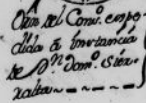 Odn del Com.º expe
dida á instancia
de Dn domº. Siex
xalta